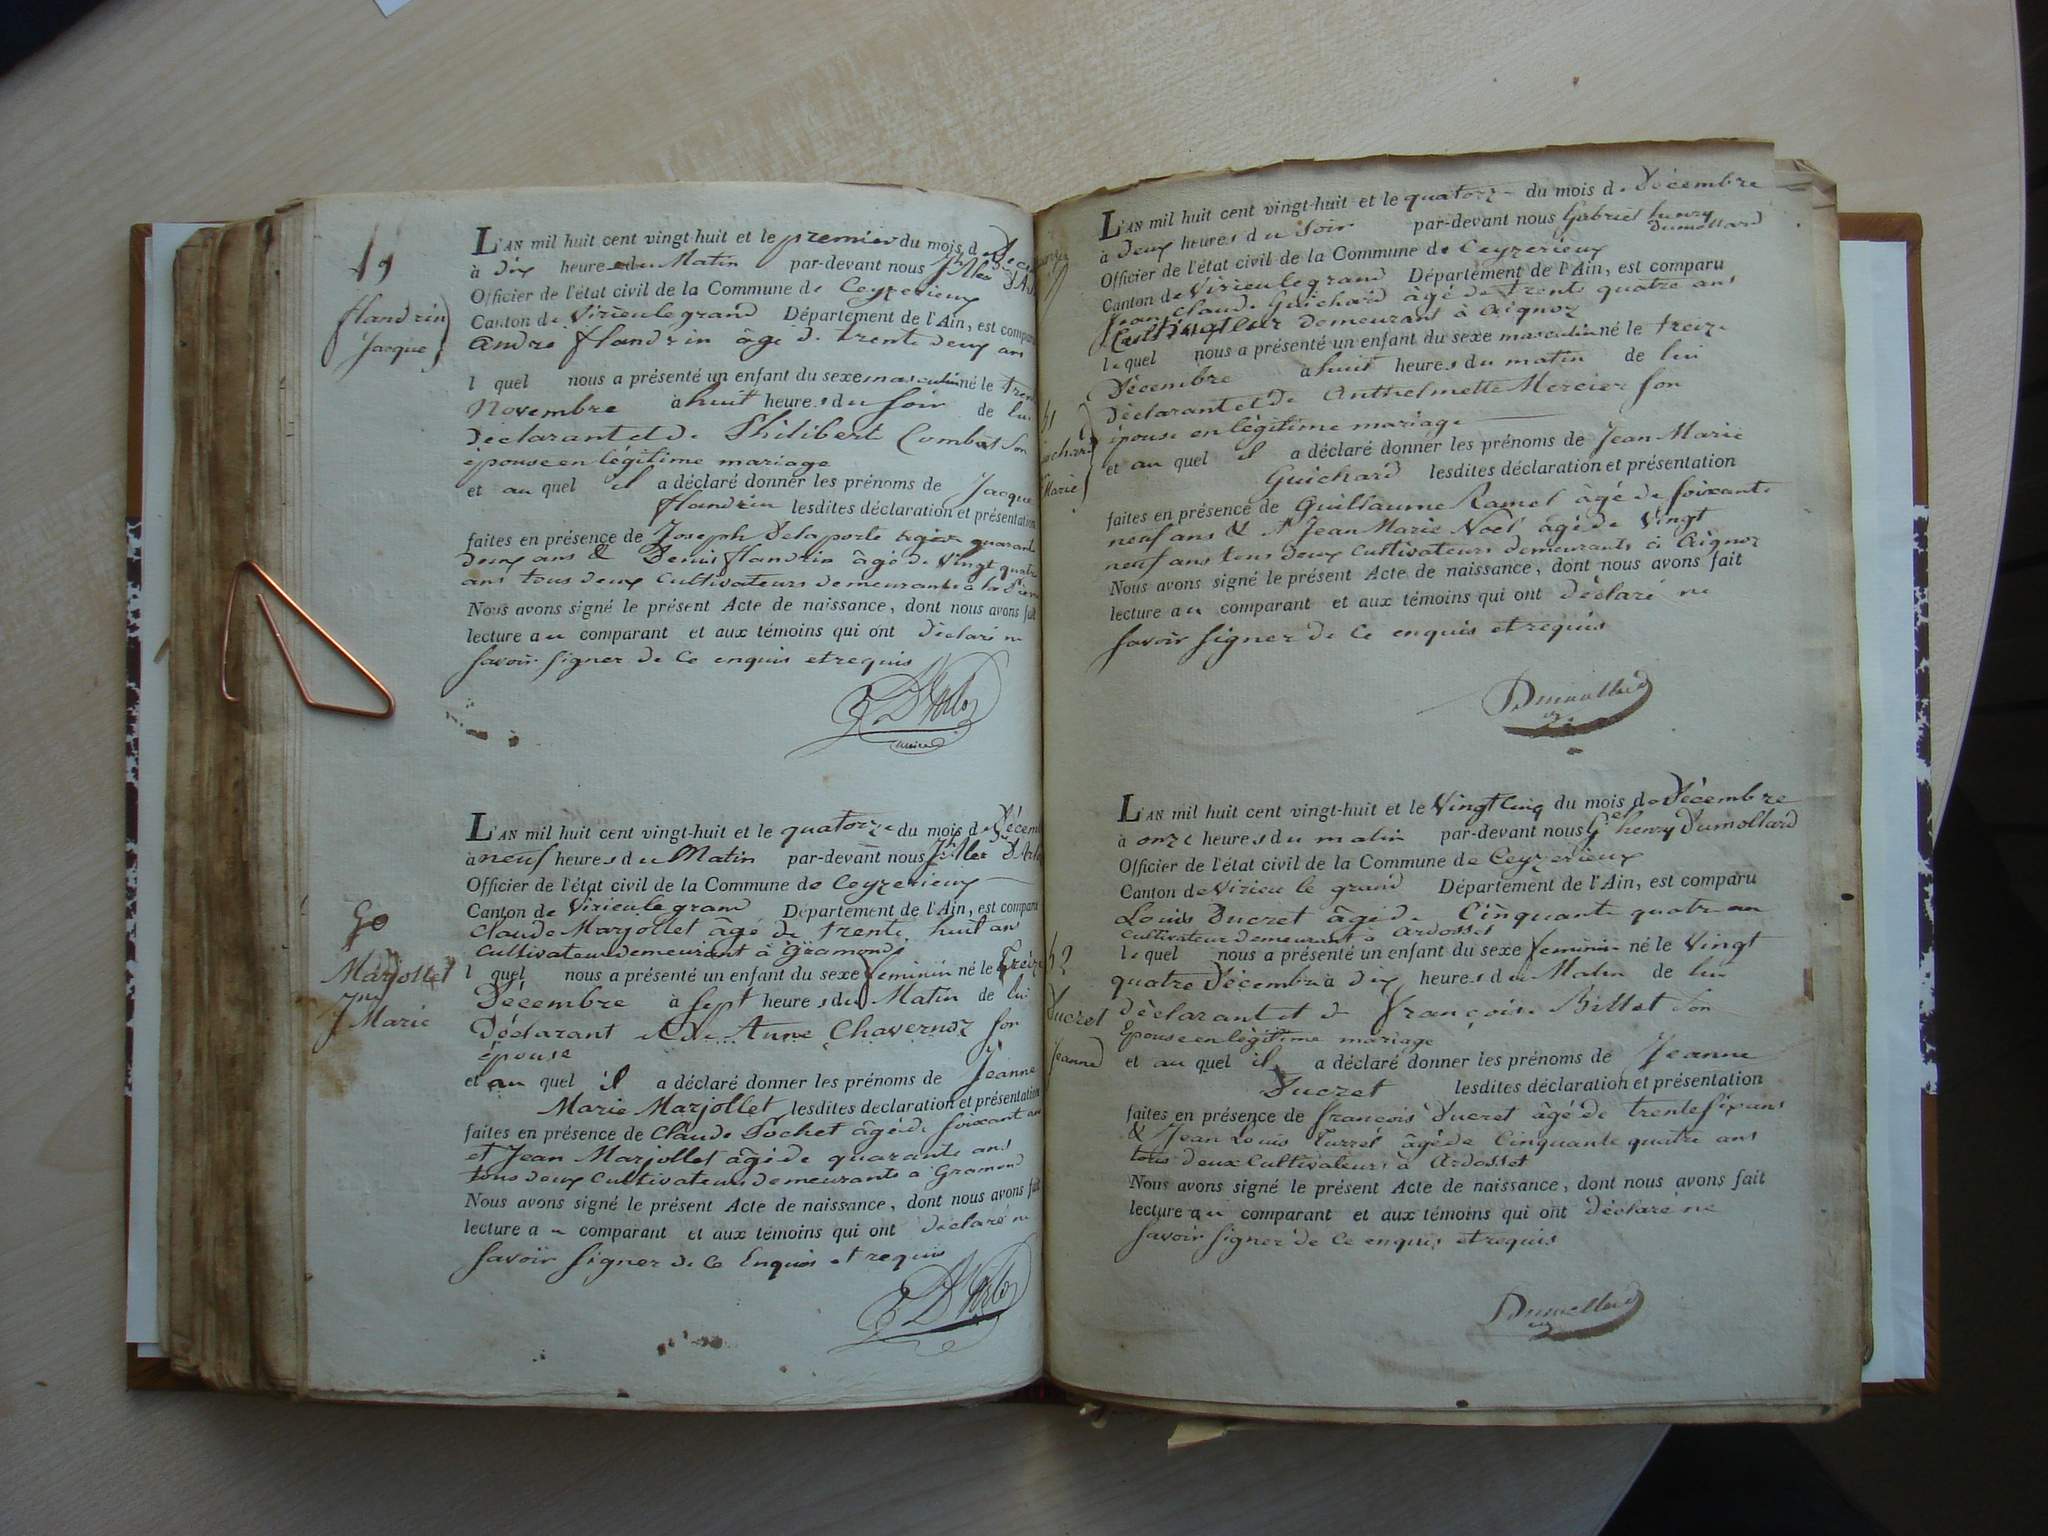 49
flandrin
Jacque
L'AN mil huit cent vingt-huit et le premier du mois d
à dix heure du Matin par-devant nous
Officier de l'état civil de la Commune de Ceyzerieux
Canton de Virieulegrand Département de l'Ain, est compar
André flandrin âgé de trente deux ans
l quel nous a présenté un enfant du sexe masculin né le
Novembre à huit heures du soir de lui
déclarant et de Philiberte Combet son
épouse en légitime mariage
et au quel il a déclaré donner les prénoms de Jacque
flandrin lesdites déclaration et présentation
faites en présence de Joseph Delaporte agé quarante
deux ans & Denis flandrin âgé de Vingt quatre
ans tous deux Cultivateurs demeurants à la
Nous avons signé le présent Acte de naissance, dont nous avons fait
lecture au comparant et aux témoins qui ont déclaré ne
savoir signer de ce enquis et requis
50
Marjollet
Jne
Marie
L'AN mil huit cent vingt-huit et le quatorze du mois de Décem
à neuf heures du Matin par-devant nous
Officier de l'état civil de la Commune de Ceyzerieux
Canton de Virieulegrand Département de l'Ain, est compar
Claude Marjollet âgé de trente huit ans
Cultivateur demeurant à Gramond
l quel nous a présenté un enfant du sexe feminin né le Treize
Décembre à sept heures du Matin de lui
Déclarant et de Anne Chavernoz son
épouse
et au quel il a déclaré donner les prénoms de Jeanne
Marie Marjollet lesdites declaration et présentation
faites en présence de Claude Pochet âgé de soixant ans
et Jean Marjollet âgé de quarante ans
tous deux Cultivateurs demeurants à Gramond
Nous avons signé le présent Acte de naissance, dont nous avons fait
lecture au comparant et aux témoins qui ont déclaré ne
savoir signer de ce Enquis et requis
51
Marie
L'AN mil huit cent vingt-huit et le quatorze du mois de Décembre
à deux heures du soir par-devant nous Gabriel henry Dumollard
Officier de l'état civil de la Commune de Ceyzerieux
Canton de Virieulegrand Département de l'Ain, est comparu
Jean Claude Guichard âgé de trente quatre ans
Cultivateur demeurant à Aignoz
lequel nous a présenté un enfant du sexe masculin né le treize
Décembre à huit heures du matin de lui
déclarant et de Anthelmette Mercier son
épouse en légitime mariage
et au quel il a déclaré donner les prénoms de Jean Marie
Guichard lesdites déclaration et présentation
faites en présence de Guillaume Ramel âgé de soixante
neuf ans & Jean Marie Noel âgé de Vingt
neuf ans tous deux Cultivateurs demeurants à Aignoz
Nous avons signé le présent Acte de naissance, dont nous avons fait
lecture au comparant et aux témoins qui ont déclaré ne
savoir signer de ce enquis et requis
Dumollard
52
Ducret
Jeanne
L'AN mil huit cent vingt-huit et le Vingt cinq du mois de Décembre
à onze heures du matin par-devant nous Gel henry Dumollard
Officier de l'état civil de la Commune de Ceyzerieux
Canton de Virieu le grand Département de l'Ain, est comparu
Louis Ducret âgé de Cinquante quatre an
Cultivateur demeurant à Ardosset
lequel nous a présenté un enfant du sexe feminin né le Vingt
quatre Décembre à dix heures du Matin de lui
déclarant et de françoise Billet son
Epouse en légitime mariage
et au quel il a déclaré donner les prénoms de Jeanne
Ducret lesdites déclaration et présentation
faites en présence de françois Ducret âgé de trente six ans
& Jean Louis Turrel âgé de Cinquante quatre ans
tous deux Cultivateurs à Ardosset
Nous avons signé le présent Acte de naissance, dont nous avons fait
lecture au comparant et aux témoins qui ont déclaré ne
savoir signer de ce enquis et requis
Dumollard